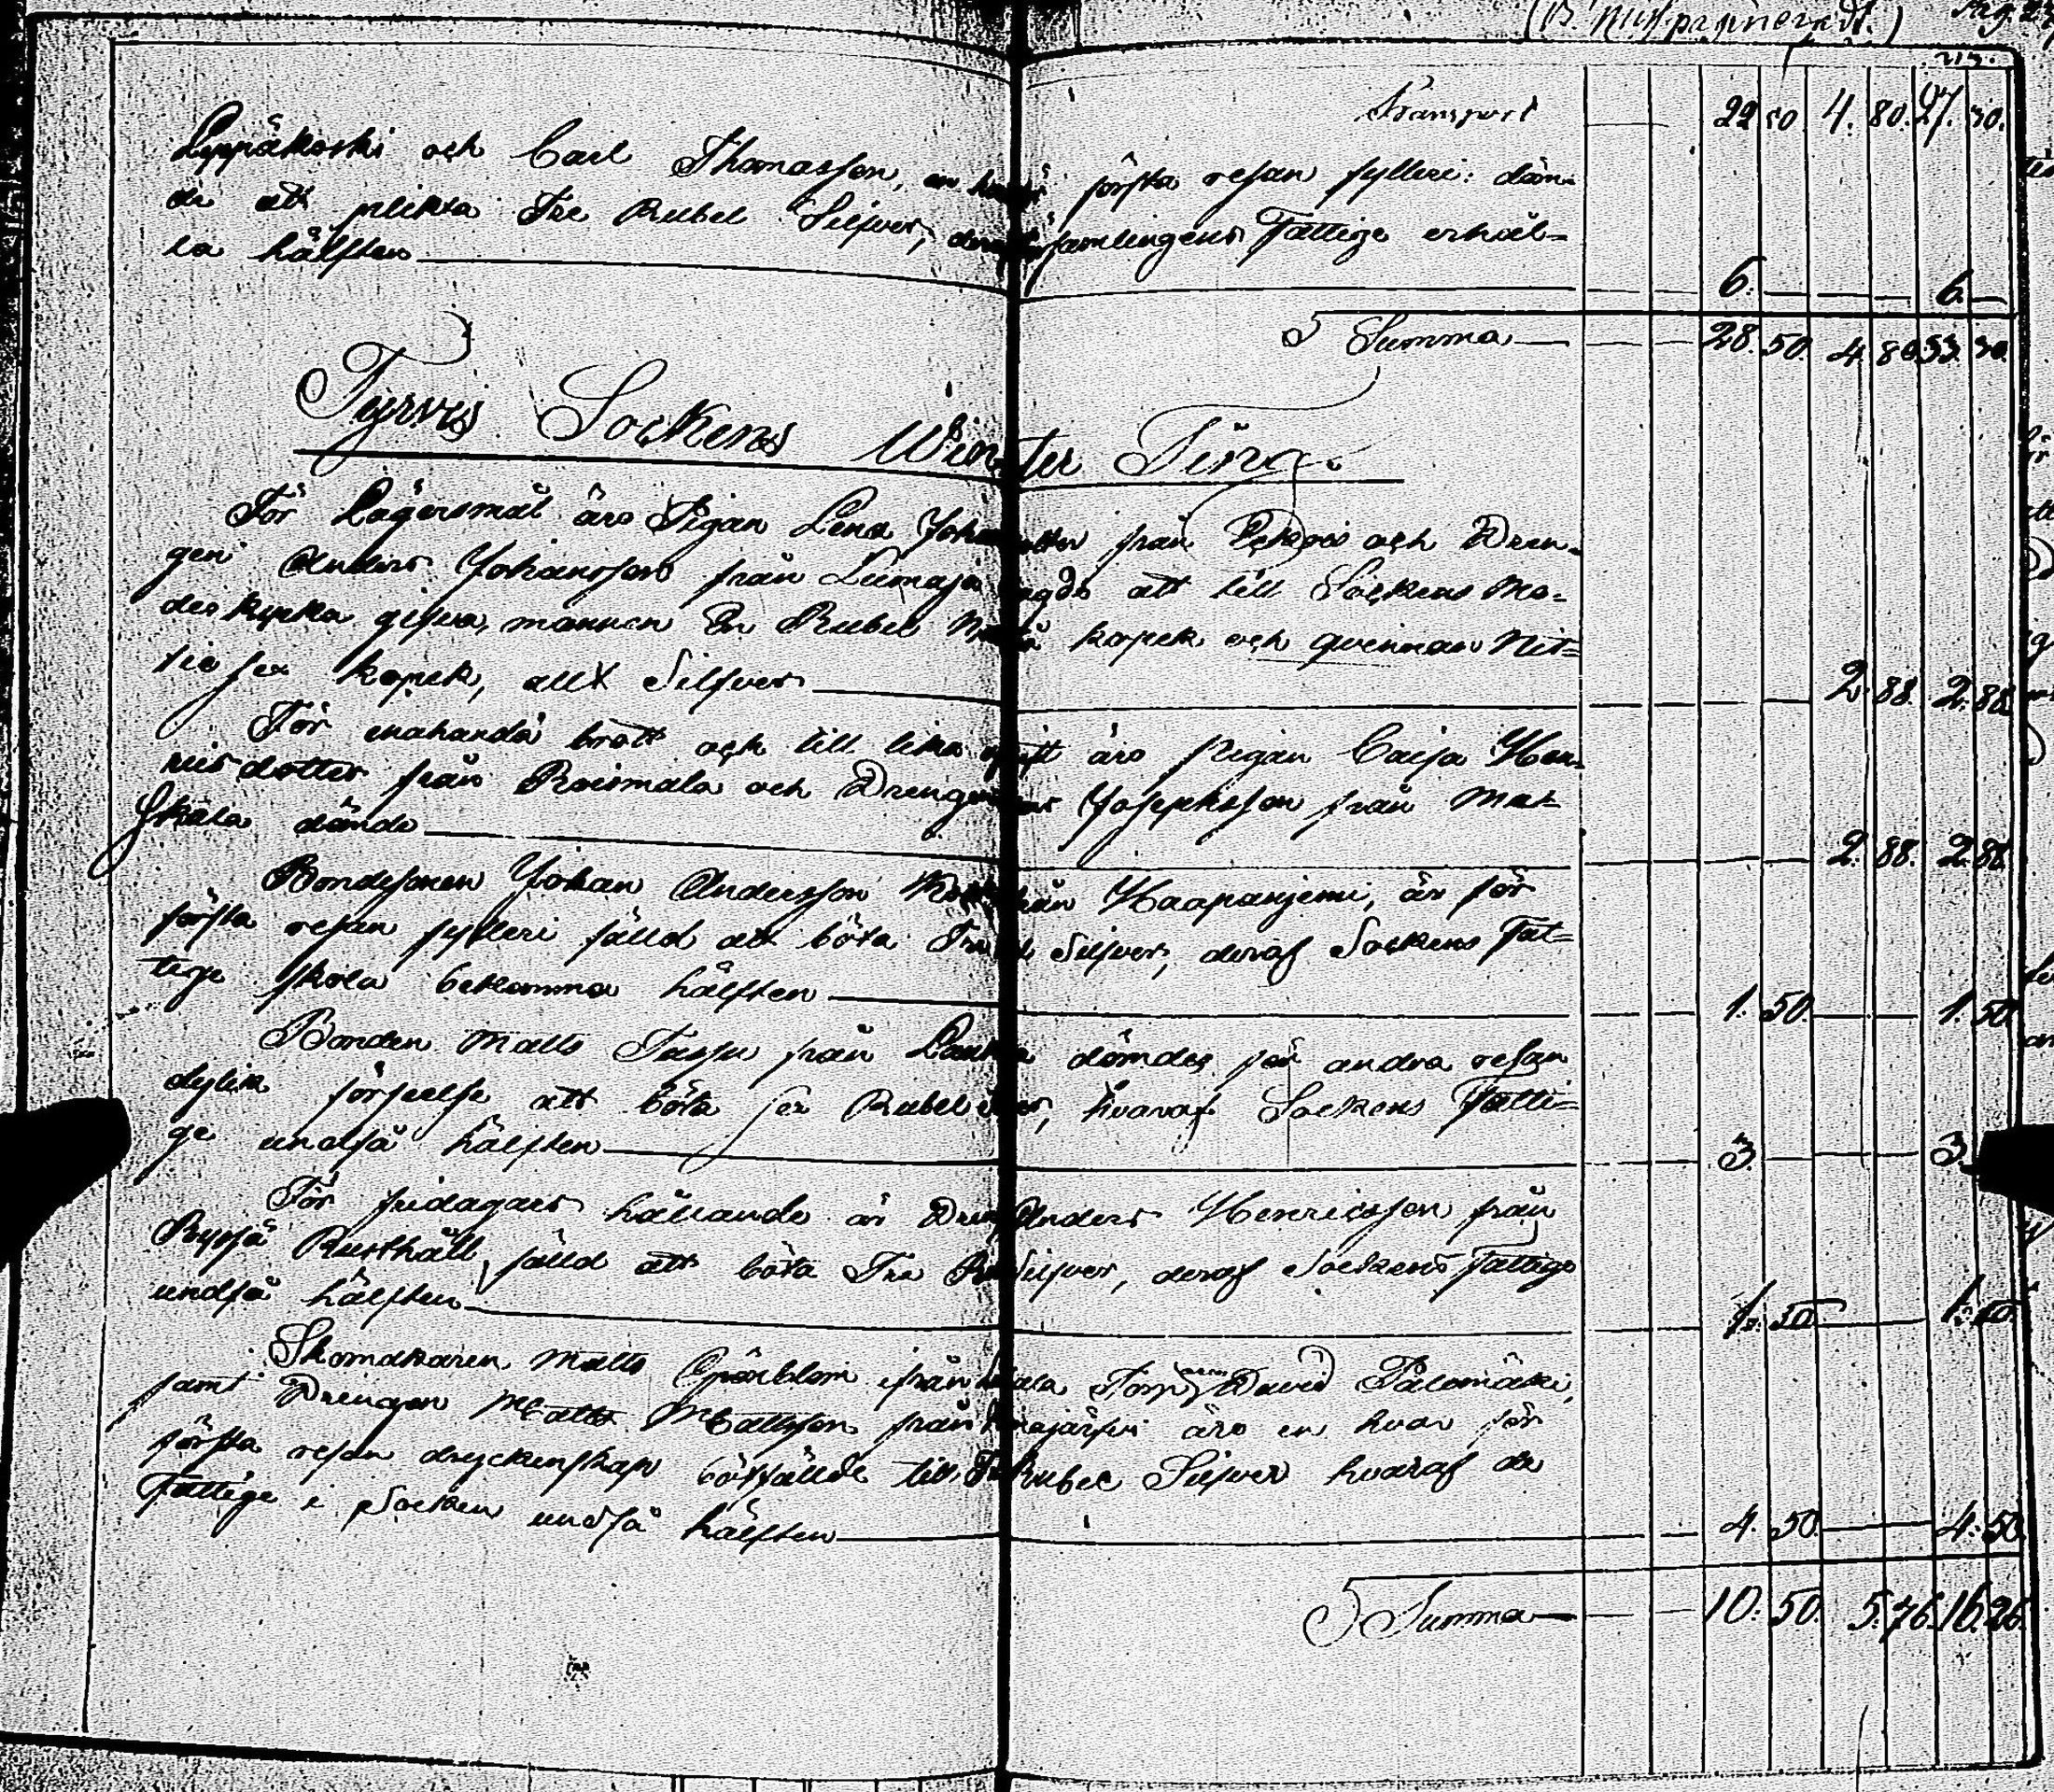 Transport 22 50 4. 80. 27. 30.
Lyppäkoski och Carl Thomasson, en hvar för första resan fylleri: döm-
de att plikta Tre Rubel Silfver, deraf församlingens Fattige erhål-
la hälften 6. 6.
Summa 28. 50. 4. 80. 33. 30.
Tyrvis Sockens Winter Ting.
För Lägersmål äro Pigan Lena från och Dren-
gen Anders Johansson från att till Sockens Mo-
derkyrka gifva, mannen En Rubel kopek och qvinnan Nit-
tie sex kopek, allt Silfver 2. 88. 2. 88.
För enahanda brott och till lika äro pigan Caisa Hen-
riksdotter från Roismala och Drengen Josephsson från Mat-
skala dömde 2. 88. 2. 88.
Bondesonen Johan Andersson från Haapaniemi, är för
första resan fylleri fälld att böta Silfver, deraf Sockens Fat-
tige skola bekomma hälften 1. 50. 1. 50.
Bonden Matts från dömdes för andra resan
dylik förseelse att böta sex Rubel, hvaraf Sockens Fatti-
ge undfå hälften 3. 3.
För hållande är Drengen Anders Henricsson från
Rusthåll, fälld att böta Tre Silfver, deraf Sockens Fattige
undfå hälften 1. 50. 1. 50.
Skomakaren Matts ifrån David Palomäki,
samt Drengen Matts Mattsson från äro en hvar för
första resan dryckenskap bötfällde till Rubel Silfver hvaraf de
Fattige i Socken undfå hälften 4. 50. 4. 50.
Summa 10. 50. 5. 76. 16. 26.